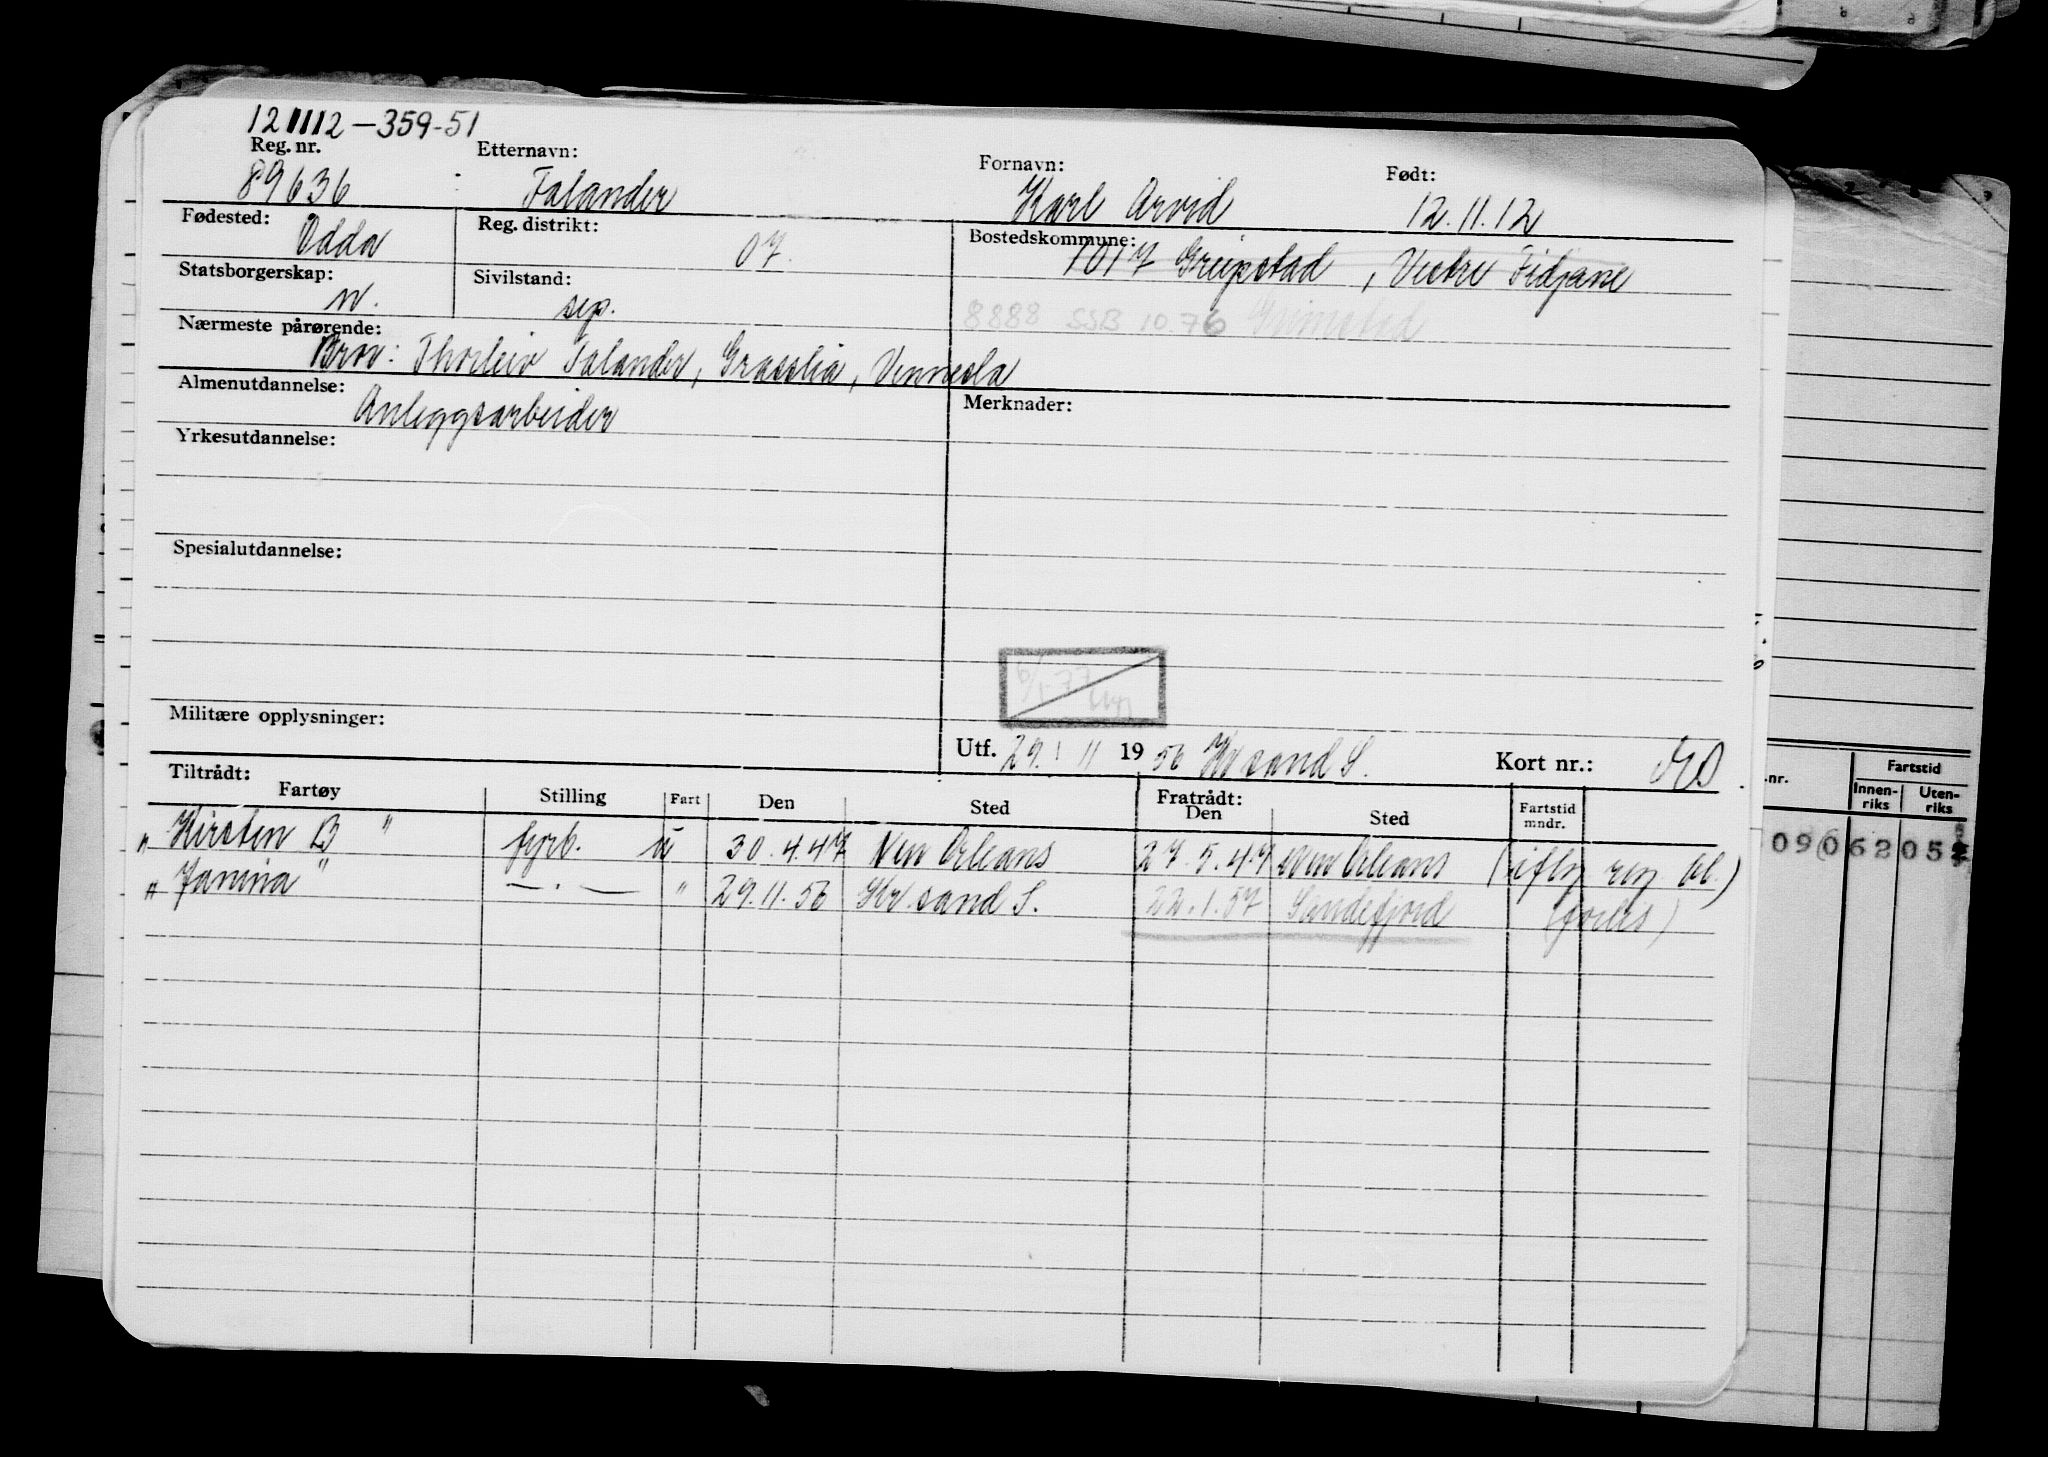 121112-359-51
Reg. nr. Etternavn: Fornavn: Født:
89636 Falander Karl Arvid 12.11.12
Fødested: Odda Reg. distrikt: 07. Bostedskommune: 1017 Greipstad, Vestre Fidjane
Statsborgerskap: n. Sivilstand: sep.
8888 SSB 10.76 Grimstad
Nærmeste pårørende:
Bror: Thorleiv Falander, Grasslia, Vennesla
Almenutdannelse: Merknader:
Anleggsarbeider
Yrkesutdannelse:
Spesialutdannelse:
Militære opplysninger:
Utf. 29. 11 1956 Kr sand S. Kort nr.:
Tiltrådt: Fratrådt:
Fartøy Stilling Fart Den Sted Den Sted Fartstid mndr.
" Kirsten B " fyrb. u 30.4.47 New Orleans 27.5.47 New Orleans (iflg reg bl.)
" Janina " —.— " 29.11.56 Kr sand S. 22.1.57 Sandefjord
nr. Fartstid
Innen-riks Uten-riks
090 62 05